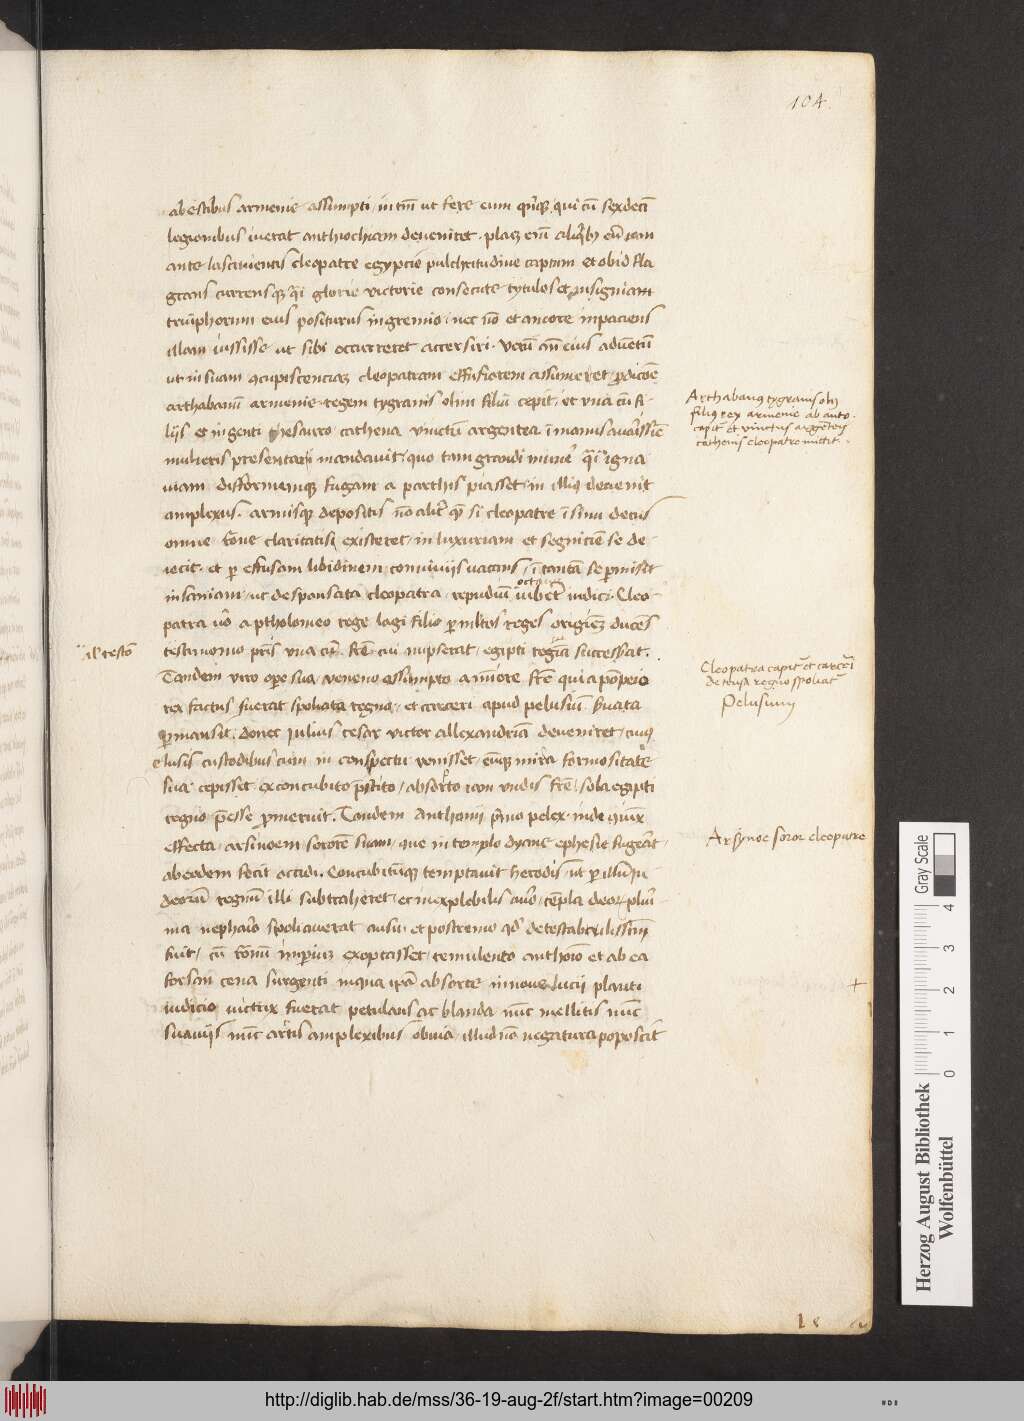 104.
ab estibus armenie assumpti, in tm̄ ut fere cum quīqꝫ, qui cū sexdecī
legionibus iverat anthiochiam deveniret. plaꝫ enī aliqͥbꝫ eū iam
ante lascivientis cleopatre egyptie pulchritudine captum et ob id fla
grans currensqꝫ qͣi glorie victorie consecute tytulos et insigniam
triūphorum eius positurus in gremio, nec nō et amore inpaciens
illam iussisse ut sibi occurreret accersiri. Verū an̄ eius adventū
ut in suam ꝯcupiscenciaꝫ cleopatram effusiorem assumeret, ꝓdicōe
arthabanū armenie regem tygranis olim filiū cepit, et una cū fi-
lijs et ingenti thesauro cathena vinctū argentea ī manus avarissīe
mulieris presentari mandavit, quo tam grandi mūer̄ qͣi igna
viam difformemqꝫ fugam a parthis piasset, in illiꝰ devenit
amplexus. armisqꝫ depositis nō alit̄ qͣ si cleopatre ī sinu decus
omne rōne claritatisqꝫ existeret, in luxuriam et segniciē se de-
iecit. et ꝑ effusam libidinem conviviis vacans, ī tantā se ꝑmisit
insaniam, ut desponsata cleopatra, repudiū octavie iuberet indici. Cleo-
patra v̄o a ptholomeo rege lagi filio ꝑ mltos reges originēꝫ ducēs
testimonio pr̄is una cū fr̄e cui nupserat, egipti regia successerat.
Tandem viro ope sua, veneno assumpto amiore fr̄e qui a pōpeio
rex factus fuerat spoliata regno, et carceri apud pelusiū pͥvata
ꝑmansit. donec Julius cesar victor allexandriā deveniret, cuiꝰ
elusis custodibus cum in conspectu venisset, eūqꝫ mira formositate
sua cepisset ex concubito pͣstito, absorto iam undis fr̄e, sola egipti
regno p̄esse ꝓmeruit. Tandem Anthonij pͥmo pelex, inde ꝯiūx
effecta, arsinoem sororē suam, que in templo dyane ephesie fugerat,
ab eodem fecit occidi. Concubitūqꝫ temptavit herodis, ut ꝑ illū Ju
deorū regnū illi subtraheret, et inexplebilis auro, tēpla deoꝝ plurī
ma nephario spoliaverat ausu. et postremo ꝙ detestabilissim
fuit, cū romanū imperiū exoptasset, temulento anthonio et ab ea
forsan cena surgenti in qua ipͣa absorte in nove lucij planti
iudicio victrix fuerat petulans ac blanda nūc mellitis nūc
suavijs nūc artis amplexibus obvia, illud nō negatura poposcit
Arthabanꝰ tygranis olī
filiꝰ rex armenie ab anto.
capit̄ et vinctus argenteis
cathenis cleopatre mittit̄.
al' testō
Cleopatra capit̄ et carcerī
detrusa regno spoliat̄
Pelusium
Arsynoe soror cleopatre
+
Gray Scale
0 1 2 3 4
Herzog August Bibliothek
Wolfenbüttel
http://diglib.hab.de/mss/36-19-aug-2f/start.htm?image=00209